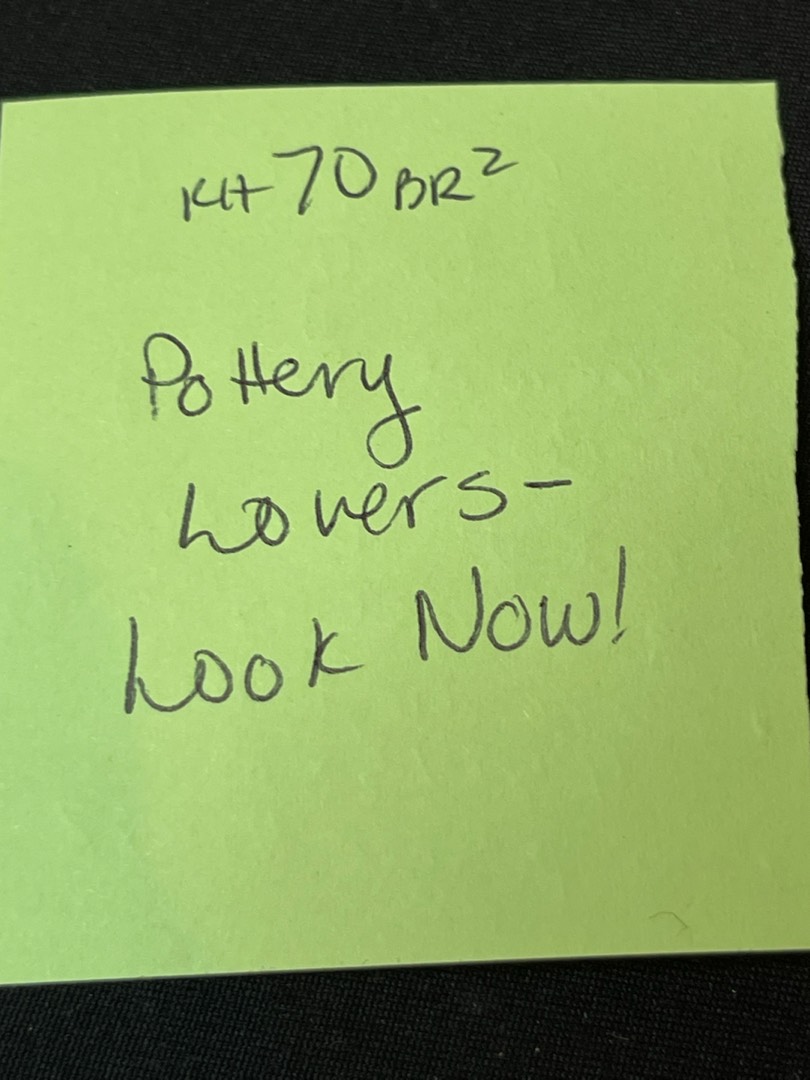 KH70BR²
Pottery
Lovers-
Look Now!